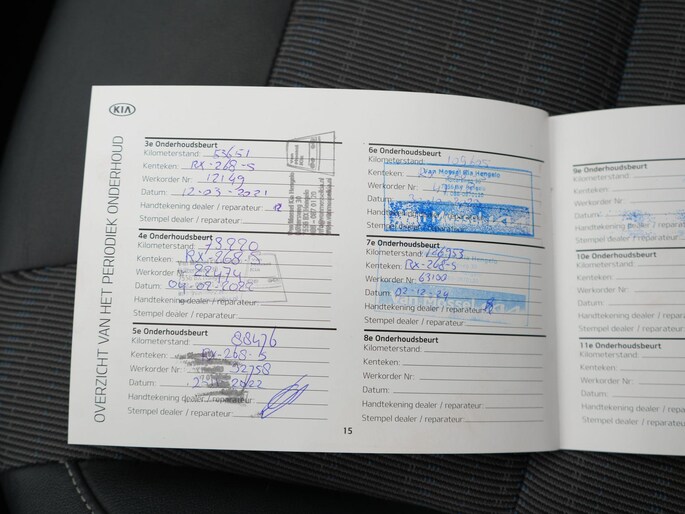 KIA
OVERZICHT VAN HET PERIODIEK ONDERHOUD
3e Onderhoudsbeurt
Kilometerstand: 53651
Kenteken: RX-268-S
Werkorder Nr: 12149
Datum: 12-03-2021
Handtekening dealer / reparateur:
Stempel dealer / reparateur:
4e Onderhoudsbeurt
Kilometerstand: 73220
Kenteken: RX-268-S
Werkorder Nr: 22474
Datum: 04-02-2022
Handtekening dealer / reparateur:
Stempel dealer / reparateur:
5e Onderhoudsbeurt
Kilometerstand: 88476
Kenteken: RX-268-S
Werkorder Nr: 32758
Datum: 2022
Handtekening dealer / reparateur:
Stempel dealer / reparateur:
6e Onderhoudsbeurt
Kilometerstand:
Kenteken:
Van Mossel Kia Hengelo
Werkorder Nr:
Datum:
Van Mossel Kia
Stempel dealer / reparateur:
7e Onderhoudsbeurt
Kilometerstand:
Kenteken: RX-268-S
Werkorder Nr: 63100
Datum: 02-12-24
Handtekening dealer / reparateur:
Stempel dealer / reparateur:
8e Onderhoudsbeurt
Kilometerstand:
Kenteken:
Werkorder Nr:
Datum:
Handtekening dealer / reparateur:
Stempel dealer / reparateur:
15
9e Onderhoudsbeurt
Kilometerstand:
Kenteken:
Werkorder Nr:
Datum:
Handtekening dealer / reparat
Stempel dealer / reparateur:
10e Onderhoudsbeurt
Kilometerstand:
Kenteken:
Werkorder Nr:
Datum:
Handtekening dealer / repara
Stempel dealer / reparateur:
11e Onderhoudsbeurt
Kilometerstand:
Kenteken:
Werkorder Nr:
Datum:
Handtekening dealer / repar
Stempel dealer / reparateur